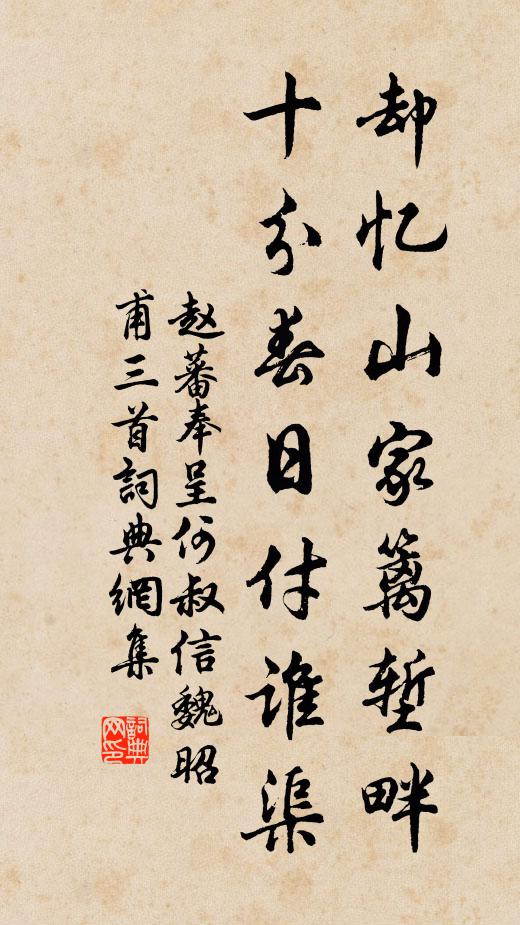 却忆山家篱堑畔
十分春日付谁渠
赵蕃奉呈何叔信魏昭
甫三首詞典網集
詞典网印